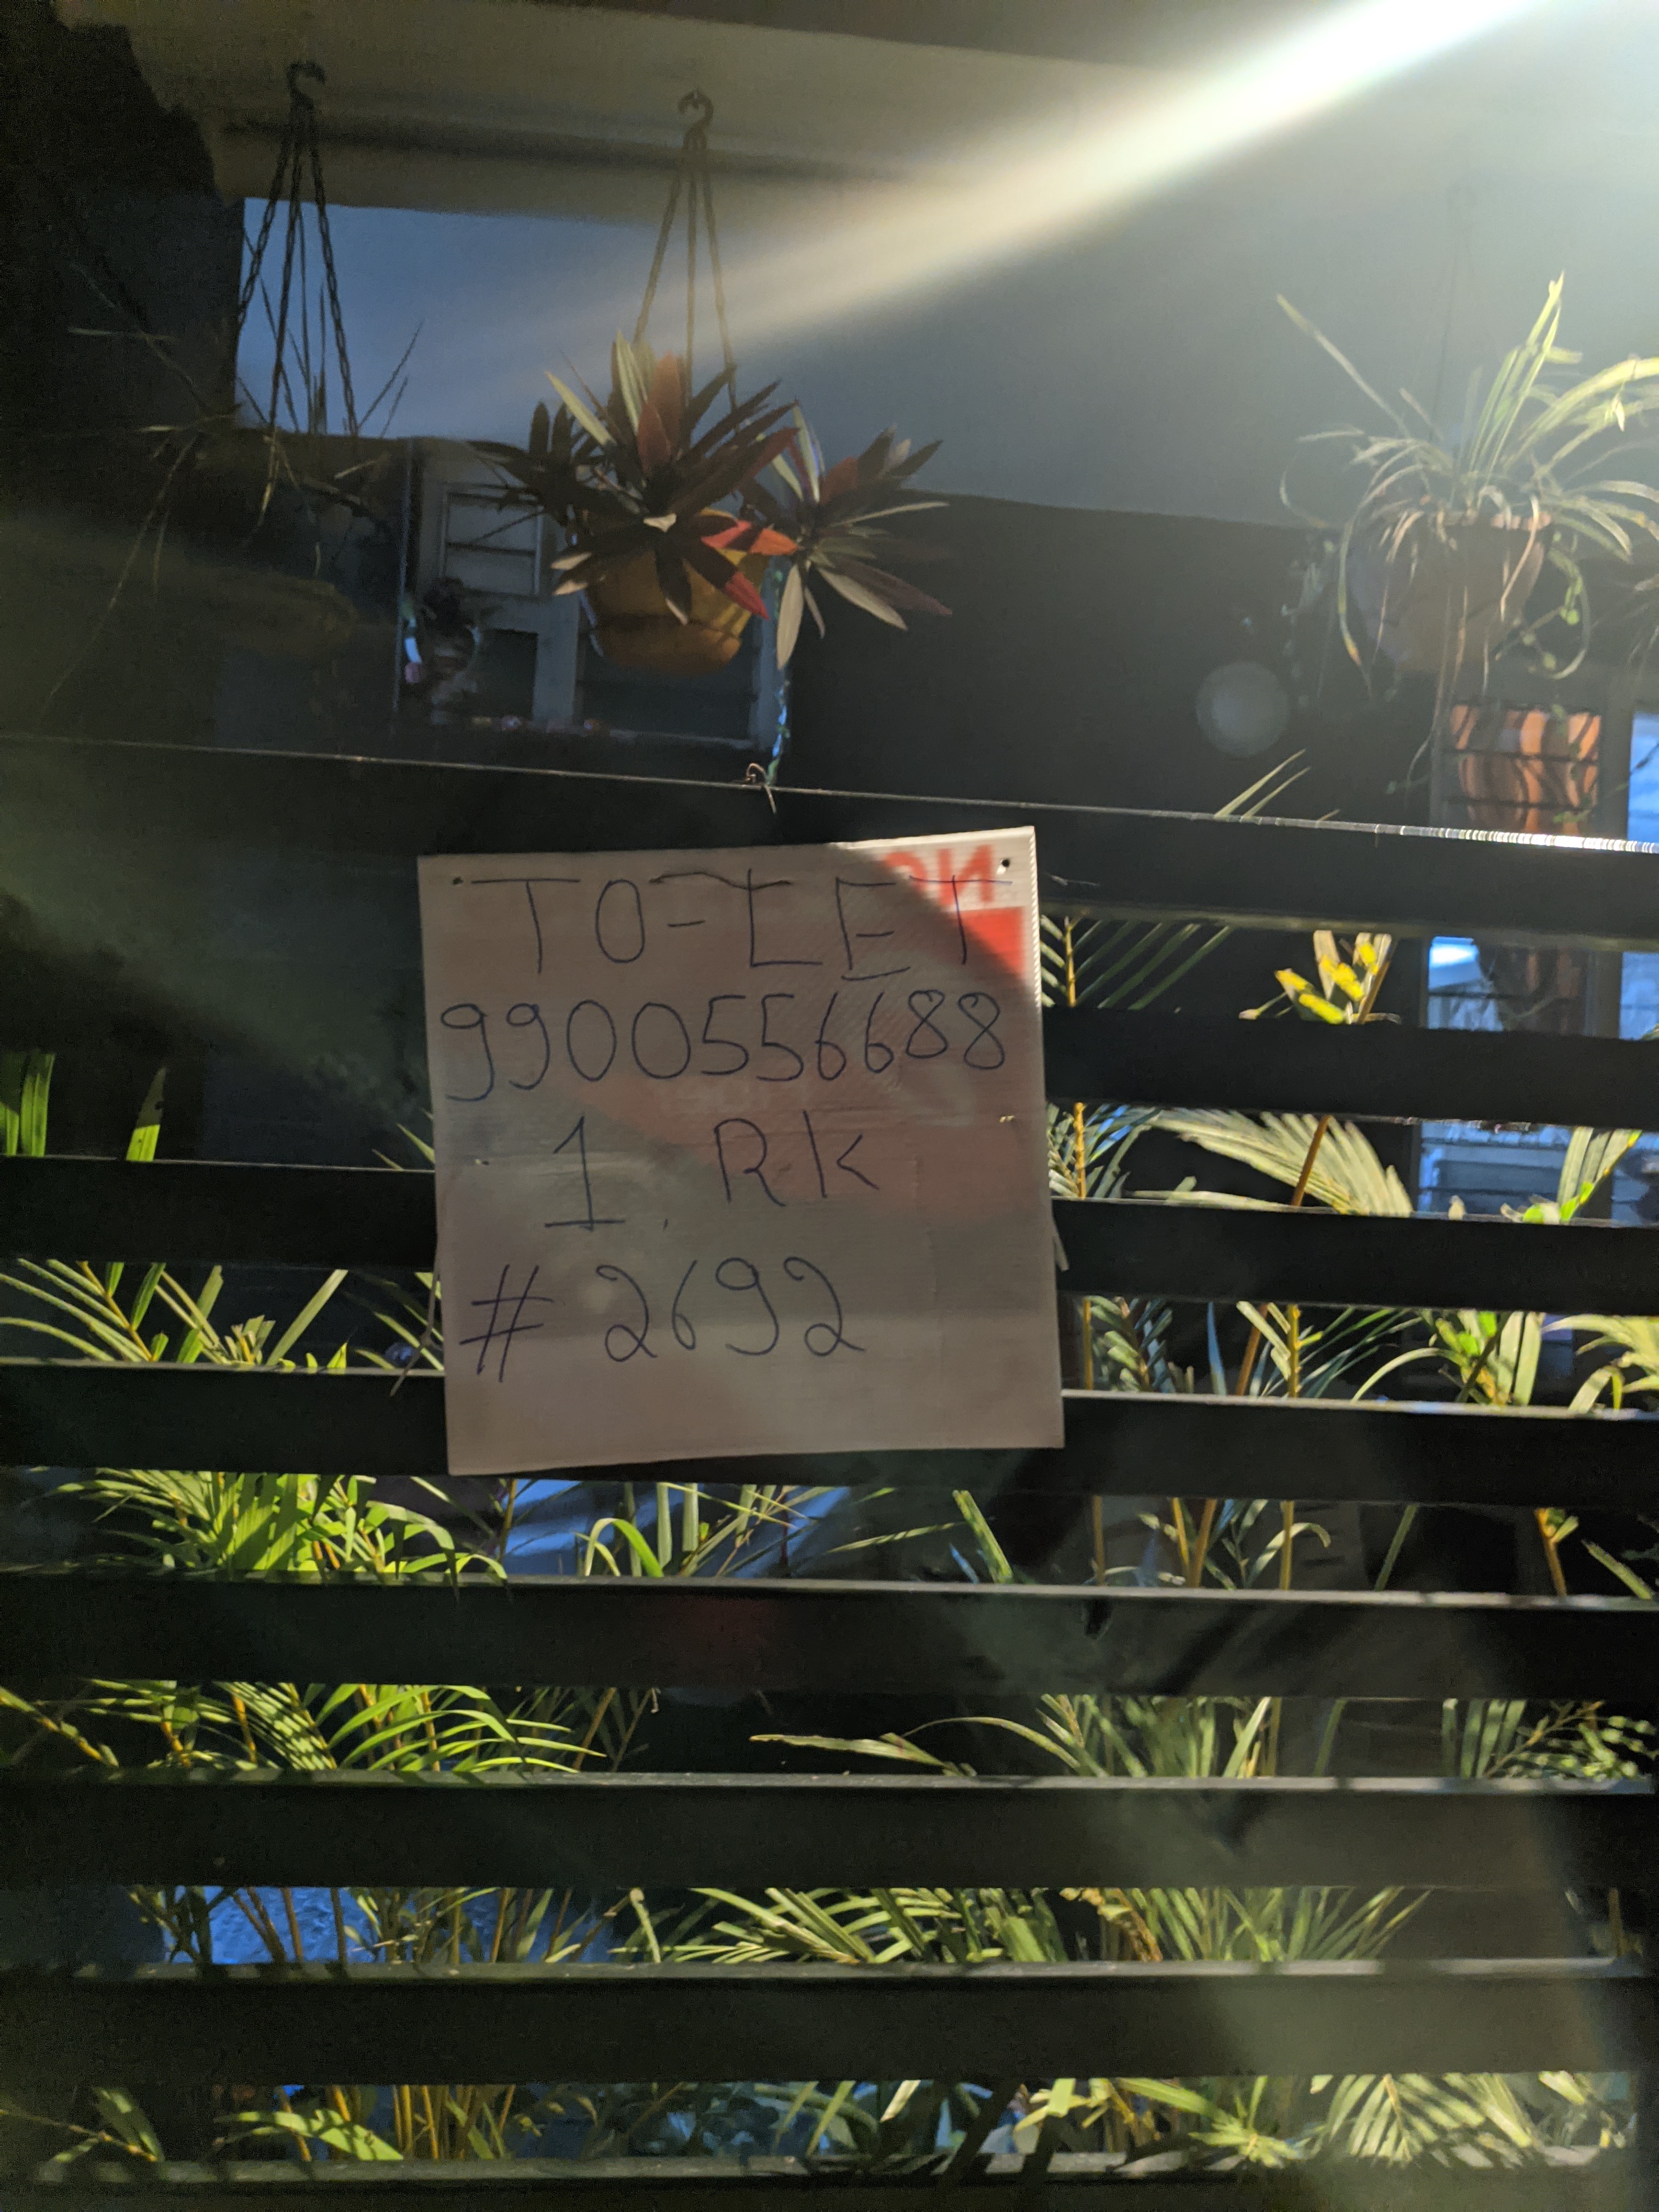 TO-LET
9900556688
1. RK
# 2692